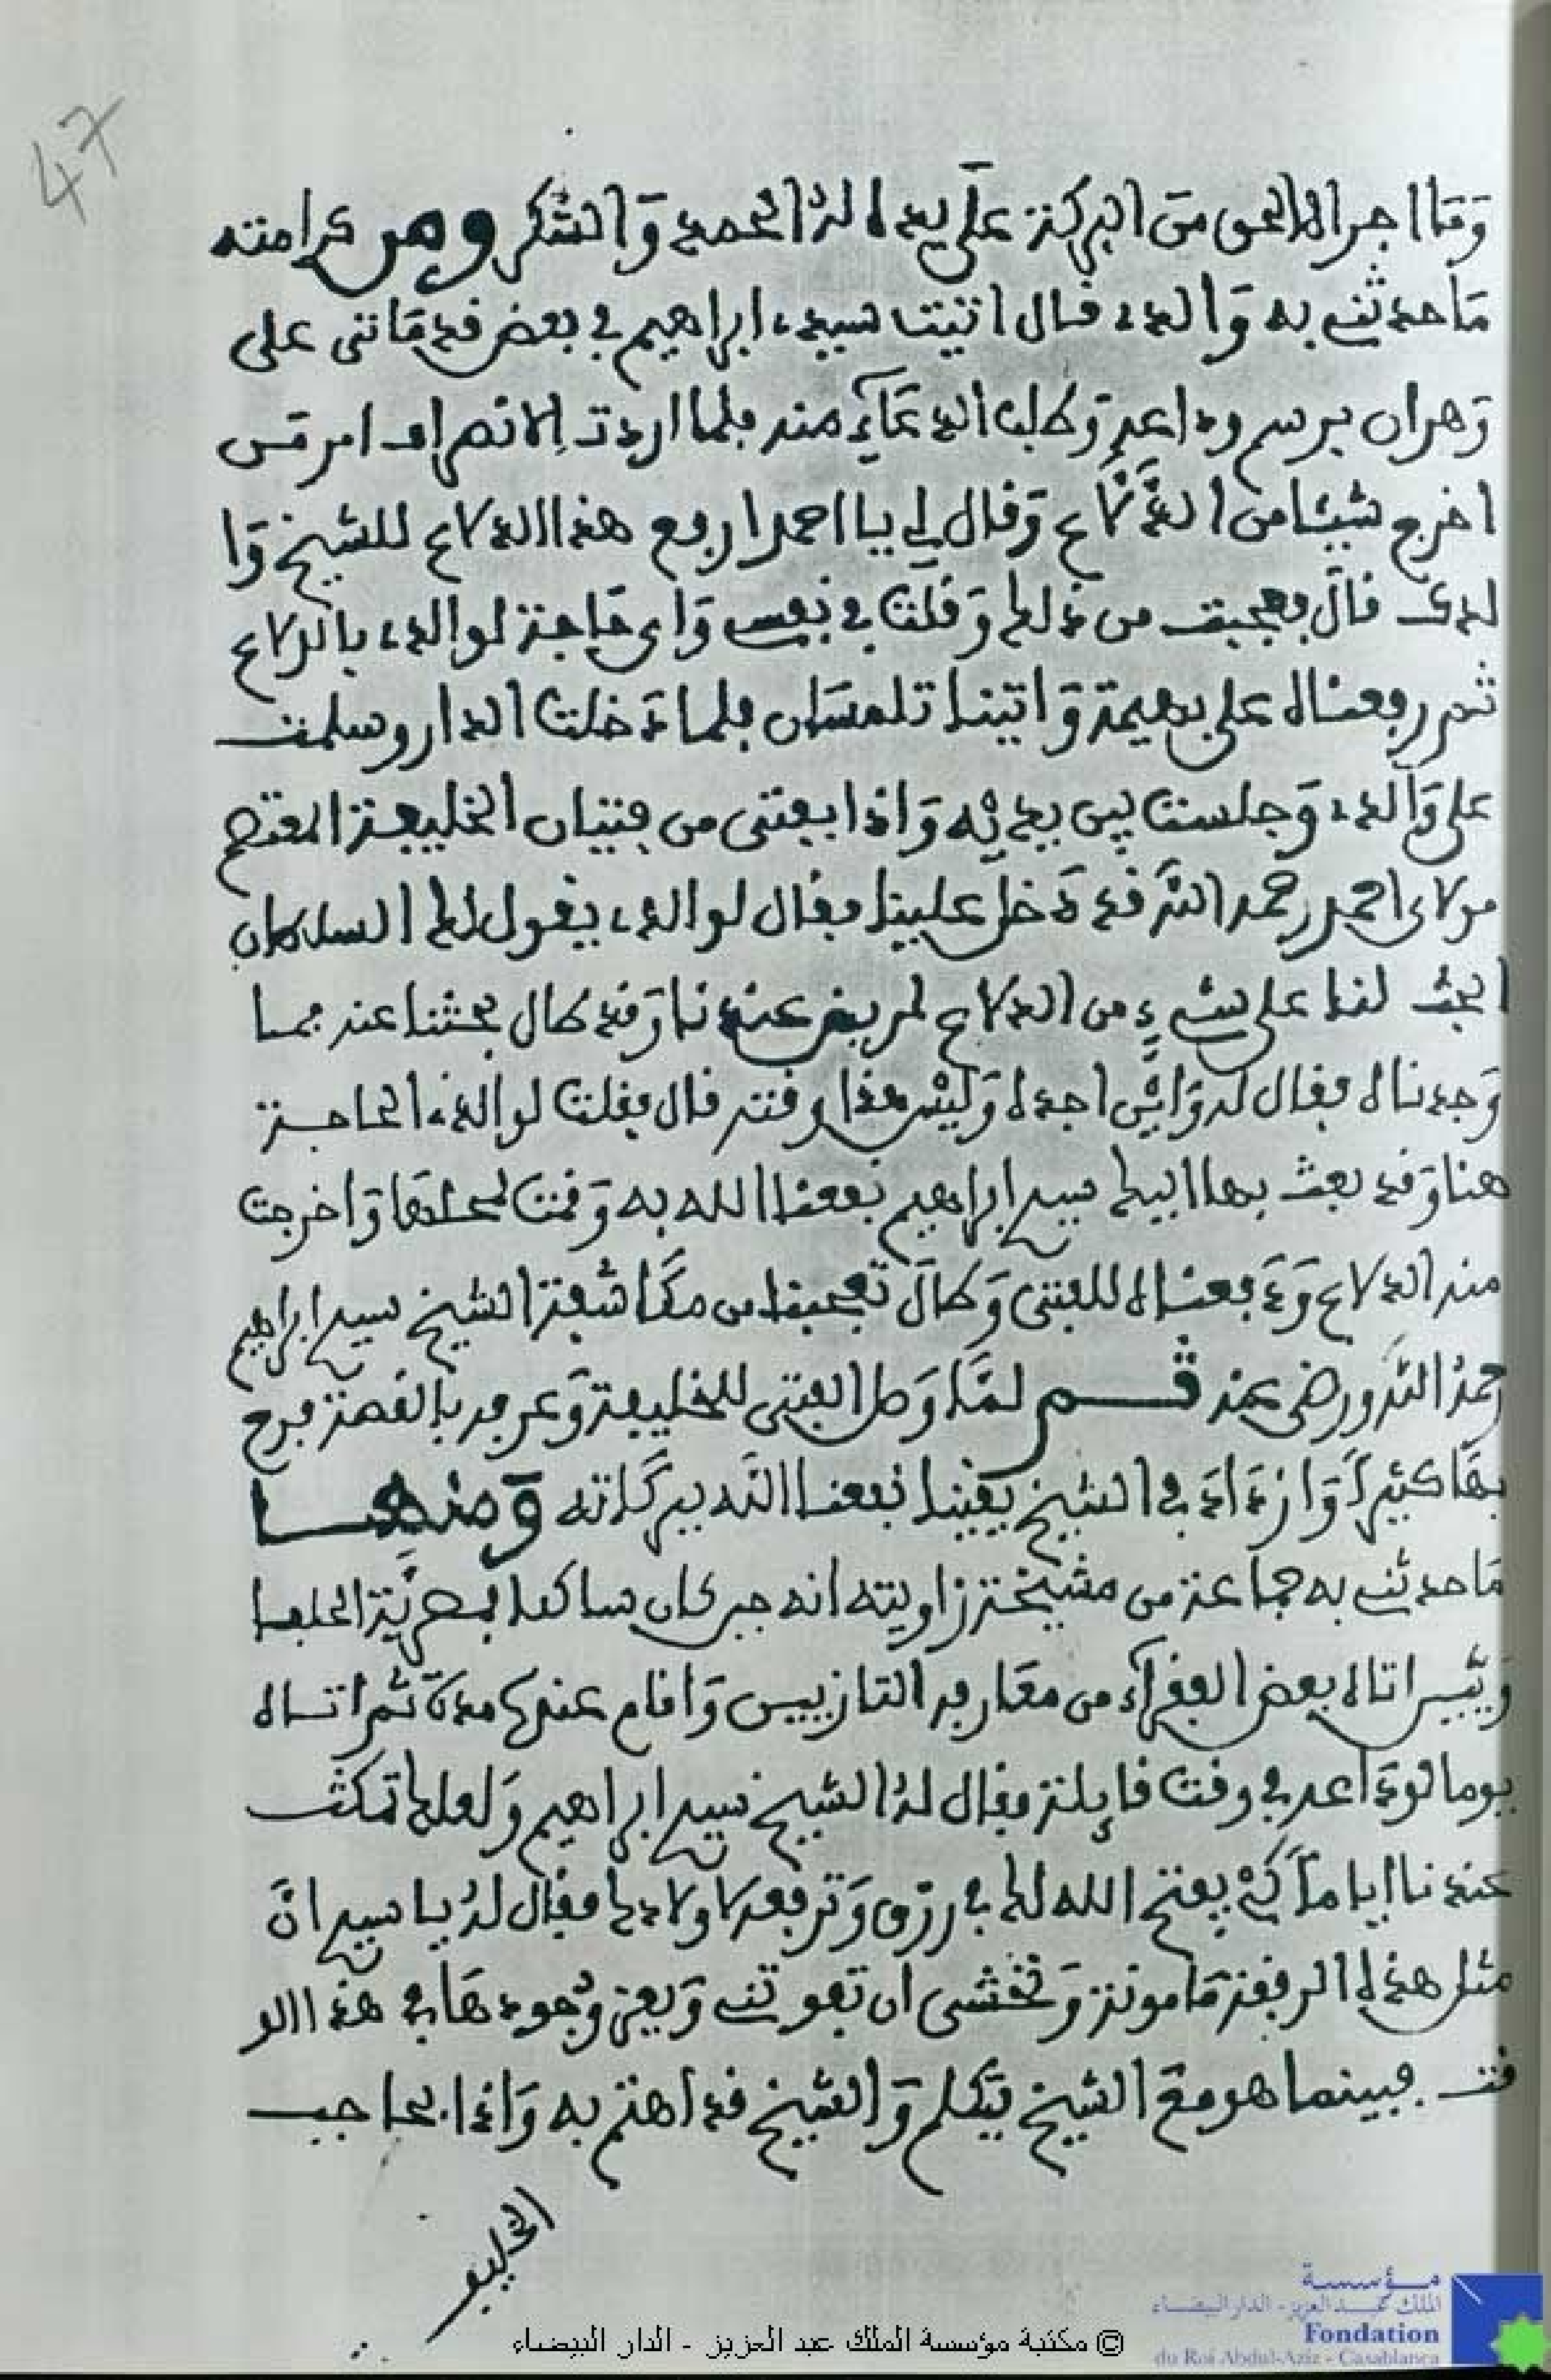 47
وما اجراه الحق من البركة على يده له الحمد والشكر ومن كرامته
ما حدثني به والدي قال اتيت سيدي ابراهيم في بعض قدماتي على
وهران برسم وداعه وطلب الدعاء منه فلما اردت الانصراف امر من
اخرج شيئا من الدلاع وقال لي يا احمد ارفع هذا الدلاع للشيخ وا
لدك قال فعجبت من ذلك وقلت في نفسي واى حاجة لوالدي بالدلاع
ثم رفعناه على بهيمة واتينا تلمسان فلما دخلت الدار وسلمت
على والدي وجلست بين يديه واذا بفتى من فتيان الخليفة
مولاى احمد رحمه الله قد دخل علينا فقال لوالدي يقول لك السلطان
ابحث لنا على شيء من الدلاع لمريض عندنا وقد طال بحثنا عنه فما
وجدناه فقال له واين اجده وليس هذا وقته قال فقلت لوالدي الحاجة
هنا وقد بعث بها اليك سيدي ابراهيم نفعنا الله به وقمت لمحلها واخرجت
منه الدلاع ودفعناه للفتى وطال تعجبنا من مكاشفة الشيخ سيدي ابراهيم
رحمه الله ورضي عنه ثم لما وصل الفتى للخليفة وعرفه بالقصة فرح
بها كثيرا وازداد في الشيخ يقينا نفعنا الله ببركاته ومنها
ما حدثني به جماعة من مشيخة زاويته انه حين كان ساكنا
اتاه بعض الفقراء من معارفه التازيين واقام عنده مدة ثم اتاه
يوما لوداعه في وقت قايلة فقال له الشيخ سيدي ابراهيم ولعلك تمكث
عندنا اياما كي يفتح الله لك في رزق وترفعه لاولادك فقال له يا سيدي ان
مثل هذه الرفقة مامونة ونخشى ان تفوتني ويعز وجودها في هذا الو
قت فبينما هو مع الشيخ يتكلم والشيخ قد اهتم به واذا بحاجب
الخليفـ
مؤسسة
الملك عبد العزيز - الدار البيضاء
Fondation
du Roi Abdul-Aziz - Casablanca
© مكتبة مؤسسة الملك عبد العزيز - الدار البيضاء